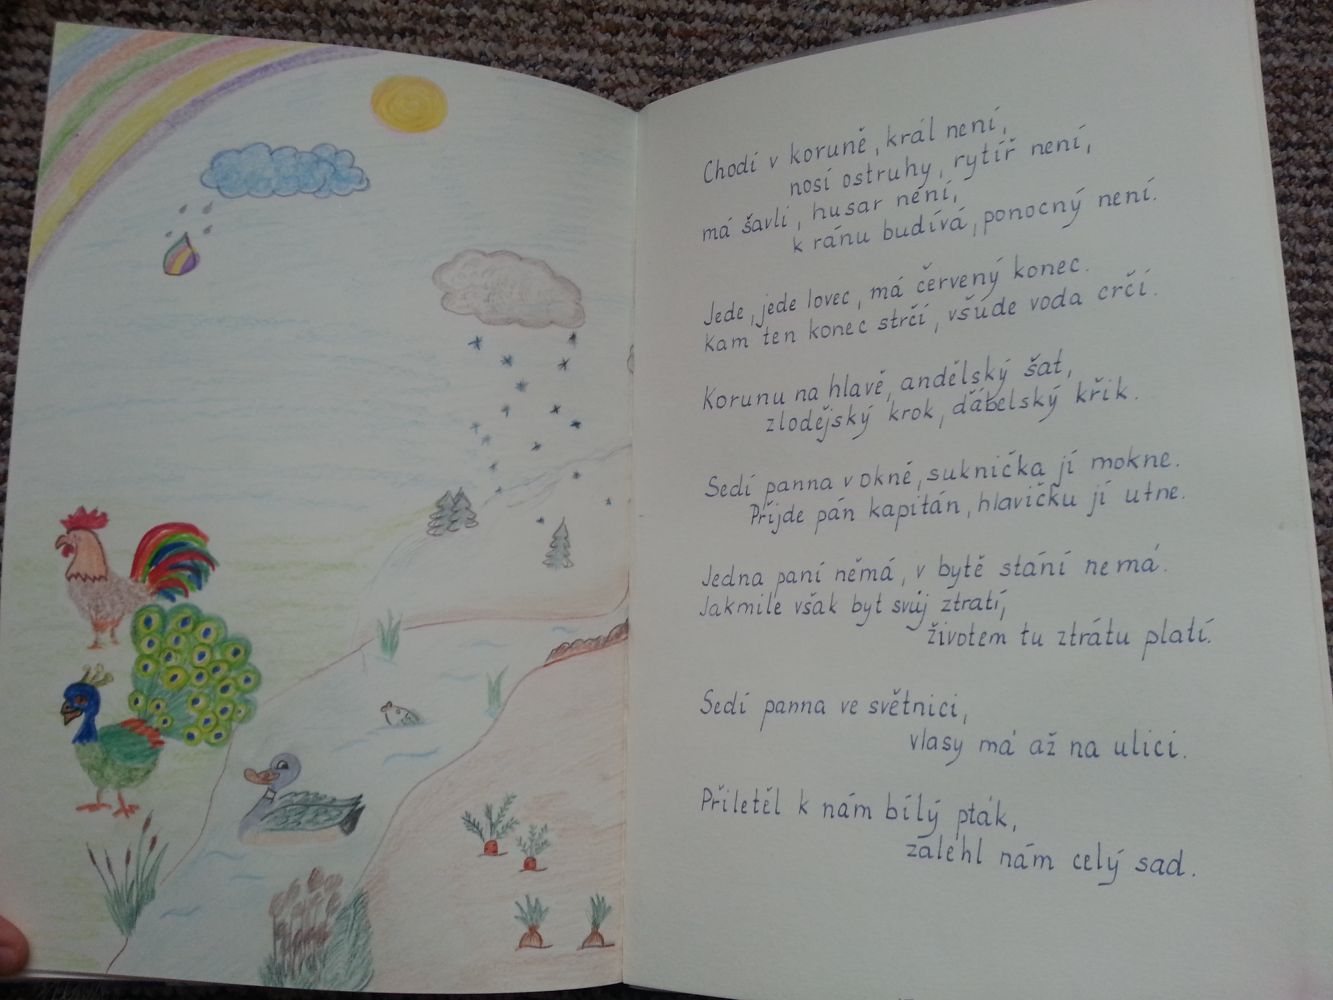 Chodí v koruně, král není,
nosí ostruhy, rytíř není,
má šavli, husar není,
k ránu budívá, ponocný není.
Jede, jede lovec, má červený konec.
Kam ten konec strčí, všude voda crčí.
Korunu na hlavě, andělský šat,
zlodějský krok, ďábelský křik.
Sedí panna v okně, suknička jí mokne.
Přijde pán kapitán, hlavičku jí utne.
Jedna paní němá, v bytě stání nemá.
Jakmile však byt svůj ztratí,
životem tu ztrátu platí.
Sedí panna ve světnici,
vlasy má až na ulici.
Přiletěl k nám bílý pták,
zalehl nám celý sad.